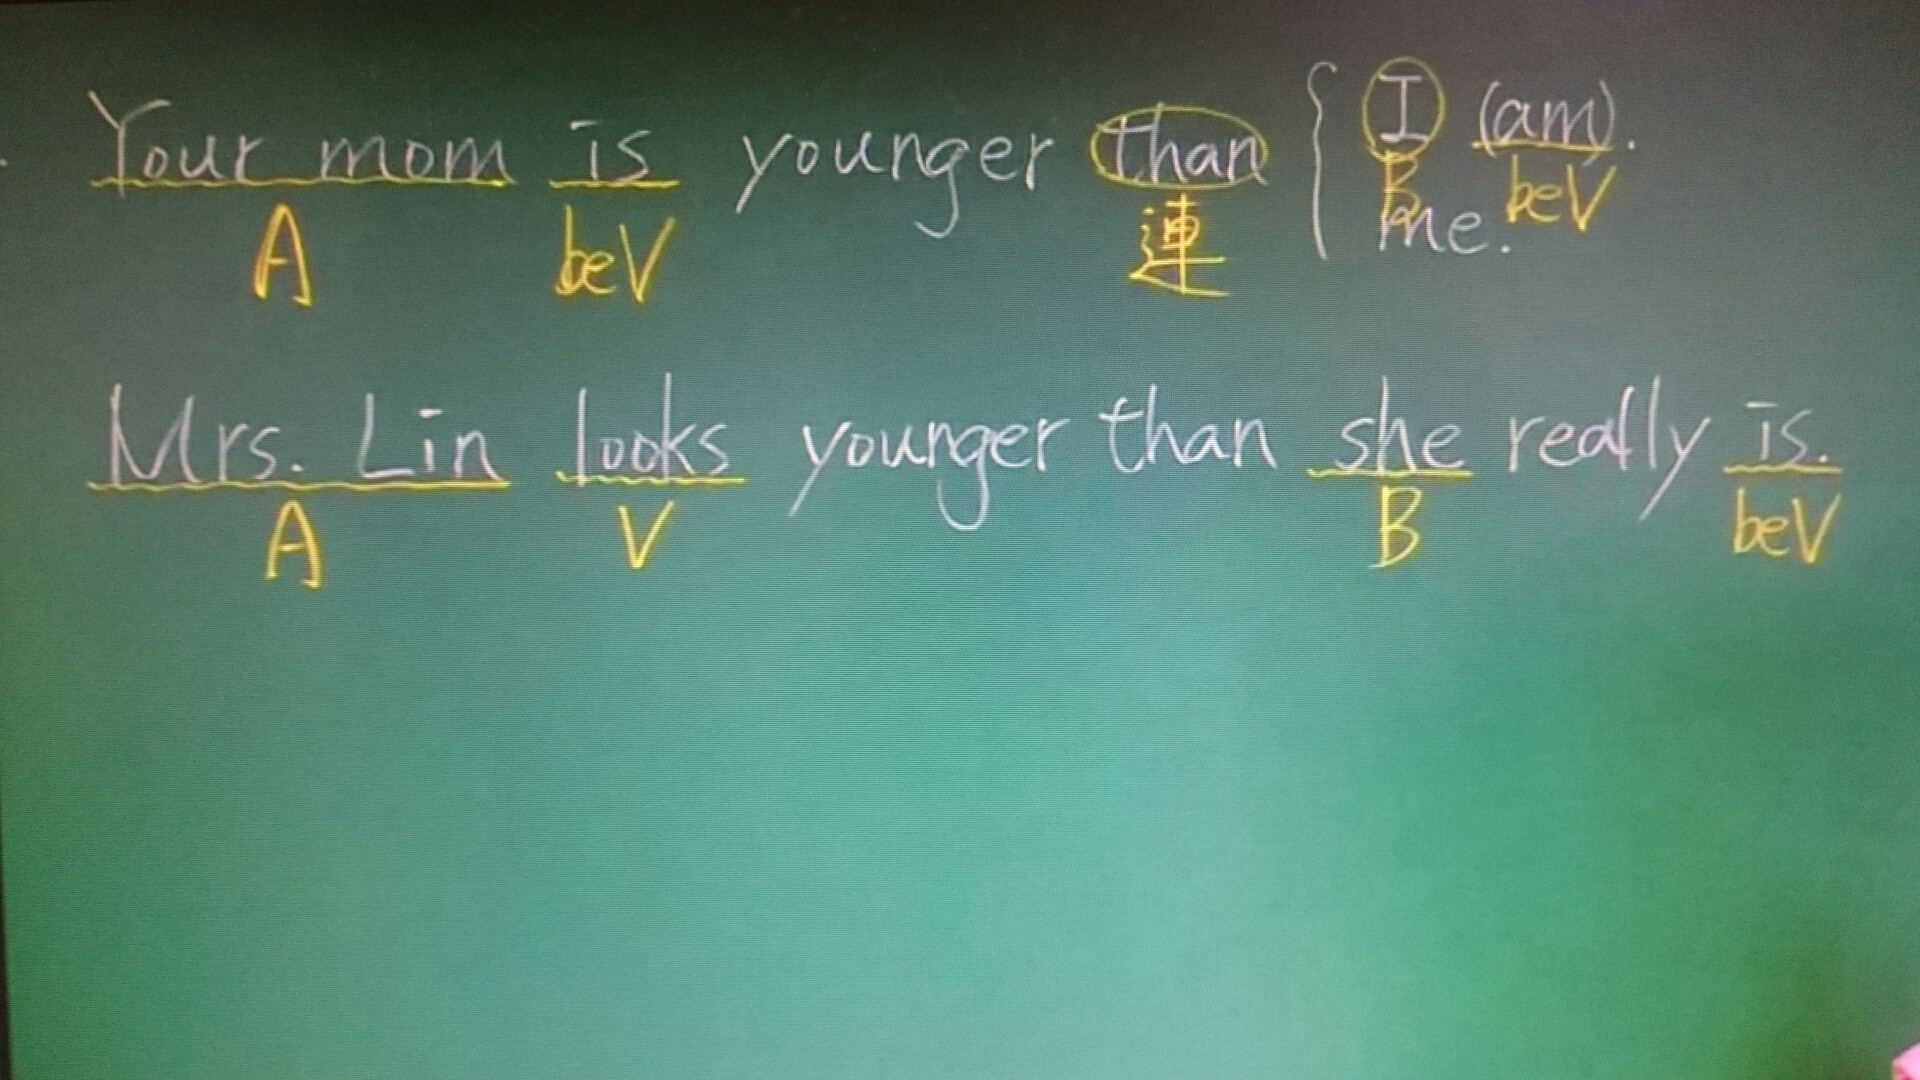 Your mom is younger than { I (am).
me.
A beV 連 B beV
Mrs. Lin looks younger than she really is.
A V B beV